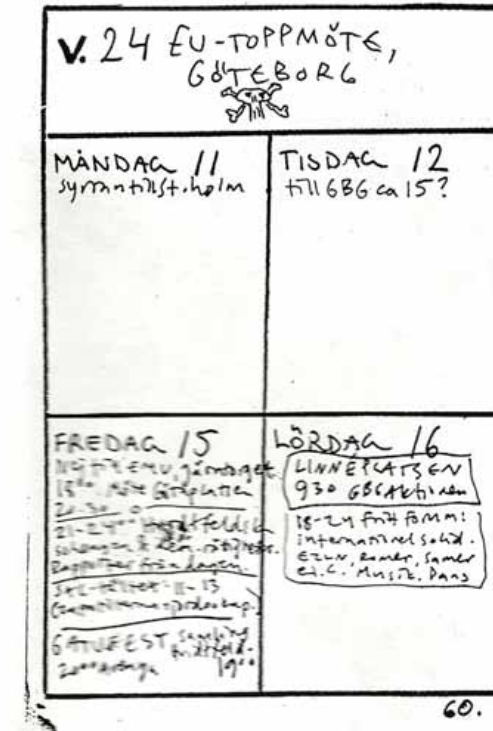 V. 24 EU-TOPPMÖTE,
GÖTEBORG
MÅNDAG 11
syrran till st.holm
TISDAG 12
till GBG ca 15?
FREDAG 15
NEJ TILL EMU, järntorget
18⁰⁰ Möte Götaplatsen
20.30
21-24⁰⁰
Rapporter från dagen.
11-13
GATUFEST, samling
19⁰⁰
LÖRDAG 16
LINNÉPLATSEN
930 GBGAktionen
18-24 Fritt forum:
internationell solid.
EZLN, romer, samer
etc. Musik, Dans
60.